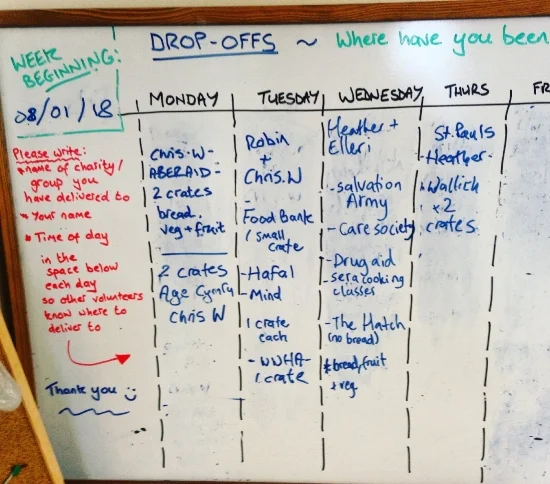 WEEK
BEGINNING:
08/01/18
DROP-OFFS ~ Where have you been
MONDAY
TUESDAY
WEDNESDAY
THURS
FR
Please write:
* name of charity/
group you
have delivered to
* Your name
* Time of day
in the
space below
each day
so other volunteers
know where to
deliver to
Thank you
Chris.W-
ABERAID-
2 crates
bread.
veg + fruit
2 crates
Age Cymru
Chris W
Robin
+
Chris.W
-
Food Bank
1 small
crate
-Hafal
-Mind
1 crate
each
-WWHA-
1 crate
Heather +
Elleri
-Salvation
Army
-Care society
-Drug aid
-sera cooking
classes
-The Hatch
(no bread)
* bread, fruit
+ veg
St. Pauls
-Heather-
Wallich
x 2
crates